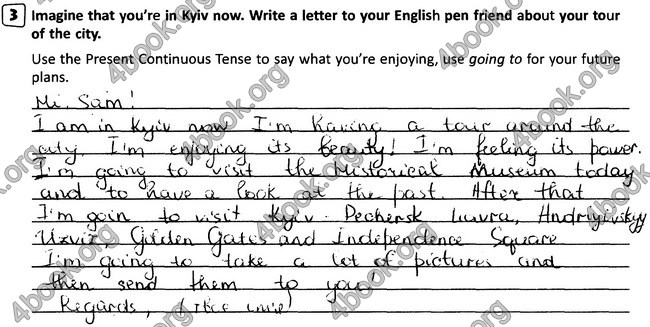 3 Imagine that you're in Kyiv now. Write a letter to your English pen friend about your tour
of the city.
Use the Present Continuous Tense to say what you're enjoying, use going to for your future
plans.
Hi, Sam!
I am in Kyiv now. I'm having a tour around the
city. I'm enjoying its beauty! I'm feeling its power.
I'm going to visit the Historical Museum today
and to have a look at the past. After that
I'm goin to visit Kyiv-Pechersk Lavra, Andriyivskyy
Uzviz, Golden Gates and Independence Square
I'm going to take a lot of pictures and
then send them to you!
Regards,
4book.org